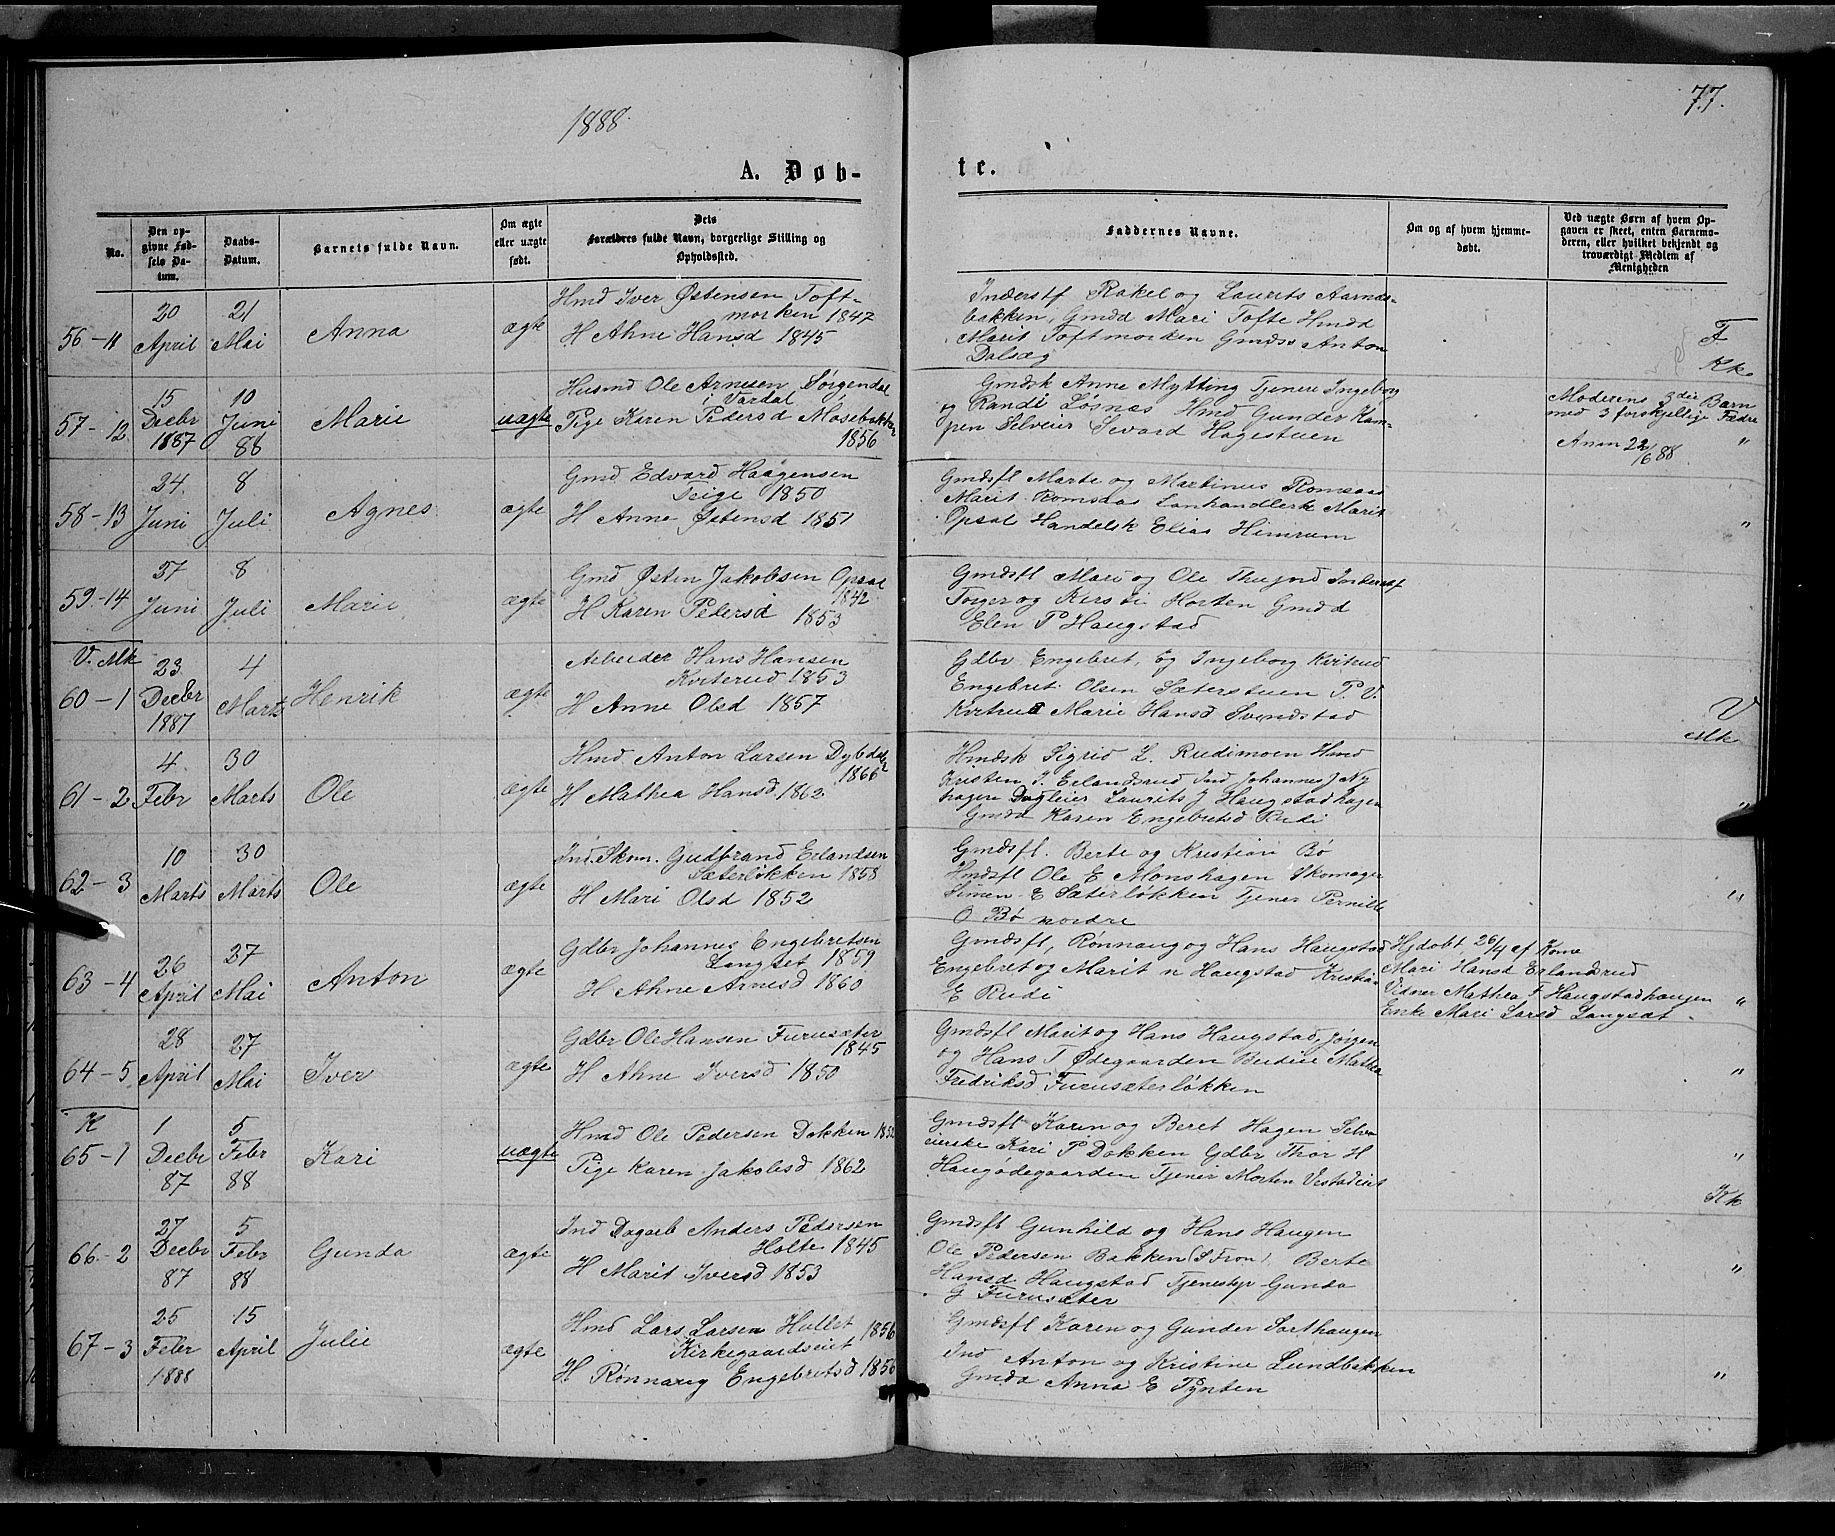 1888.
77.
A. Døb-
te.
No.
Den op-
givne Fød-
sels Da-
tum.
Daabs-
Datum.
Barnets fulde Navn.
Om ægte
eller uægte
født.
Dets
Forældres fulde Navn, borgerlige Stilling og
Opholdssted.
Faddernes Navne.
Om og af hvem hjemme-
døbt.
Ved uægte Børn af hvem Op-
gaven er skeet, enten Barnemo-
deren, eller hvilket bekjendt og
troværdigt Medlem af
Menigheden
56-11
20
April
21
Mai
Anna
ægte
Hmd Iver Østensen Toft-
morken 1847
H Ahne Hansd 1845
Inderstf Rakel og Laurits Aarnes-
bakken, Gmdd Mari Tofte Hmdd
Marit Toftmorden Gmdss Anton
Dalsæg
F
Kk.
57-12
15
Decbr
1887
10
Juni
88
Marie
uægte
Husmd Ole Arnesen Sørgendal
i Vardal
Pige Karen Pedersd Mosebakken
1856
Gmdsk Anne Mytting Tjenere Ingeborg
og Randi Løsnæs Hmd Gunder Kam-
pen Selveier Sevard Hagestuen
Moderens 3die Barn
med 3 forskjellige Fædre
Anm 22/6 88
"
58-13
24
Juni
8
Juli
Agnes
ægte
Gmd Edvard Haagensen
Teige 1850
H Anne Østensd 1851
Gmdsfl Marte og Martinus Romsaas
Marit Romsaas Lanhandlerk Marit
Opsal Handelsk Elias Himrum
"
59-14
27
Juni
8
Juli
Marie
ægte
Gmd Østen Jakobsen Opsal
1842
H Karen Pedersd 1853
Gmdsfl Mari og Ole Thujord Inderstf
Torger og Kersti Horten Gmdd
Elen P Haugstad
V. Mk
60-1
23
Decbr
1887
4
Marts
Henrik
ægte
Arbeider Hans Hansen
Kviterud 1853
H Anne Olsd 1857
Gdbr Engebret, og Ingeborg Kvitrud
Engebret Olsen Sæterstuen P. V.
Kvitrud Marie Hansd Svendstad
V
Mk
61-2
4
Febr
30
Marts
Ole
ægte
Hmd Anton Larsen Dybdal
1866
H Mathea Hansd 1862
Hmdsk Sigrid L. Rudimoen Hmd
Kristen J. Erlandsrud Ind Johannes J Ny
hagen Dagleier Laurits J Haugstadhagen
Gmdd Karen Engebretsd Rudi
"
62-3
10
Marts
30
Marts
Ole
ægte
Ind. Skm. Gudbrand Erlandsen
Sæterløkken 1858
H Mari Olsd 1852
Gmdsfl. Berte og Kristian Bø
Hmdsfl Ole E Monshagen Skomager
Simen E Sæterløkken Tjener Pernille
O Bø nordre
"
63-4
26
April
27
Mai
Anton
ægte
Gdbr Johannes Engebretsen
Langset 1859
H Ahne Arnesd 1860
Gmdsfl, Rønnaug og Hans Haugstad
Engebret og Marit n Haugstad Kristia-
E Rudi
Hjdøbt 26/4 af Kone
Mari Hansd Erlandsrud
Vidner Mathea F Haugstadhaugen
Enke Mari Larsd Langsæt.
"
64-5
28
April
27
Mai
Iver
ægte
Gdbr Ole Hansen Furusæter
1845
H Ahne Iversd 1850
Gmdsfl Marit og Hans Haugstad, Jørgen
og Hans T Ødegaarden Budeie Mathea
Fredriksd Furusæterløkken
"
K
65-1
1
Decbr
87
5
Febr
88
Kari
uægte
Hmd Ole Pedersen Dokken 1852
Pige Karen Jakobsd 1862
Gmdsfl Karen og Beret Hagen Selv-
eierske Kari P Dokken Gdbr Thor H
Haugødegaarden Tjener Morten Vestadeiet
"
Kk
66-2
27
Decbr
87
5
Febr
88
Gunda
ægte
Ind Dagarb Anders Pedersen
Holte 1845
H Marit Iversd 1853
Gmdsfl Gunhild og Hans Haugen
Ole Pedersen Bakken (S Fron), Berte
Hansd Haugstad Tjenestep Gunda
G Furusæter
"
67-3
25
Febr
1888
15
April
Julie
ægte
Hmd Lars Larsen Hullet 1856
Kirkegaardseiet
H Rønnaug Engebretsd 1856
Gmdsfl Karen og Gunder Sorthaugen
Ind Anton og Kristine Lundbakken
Gmdd Anna E Tynten
"